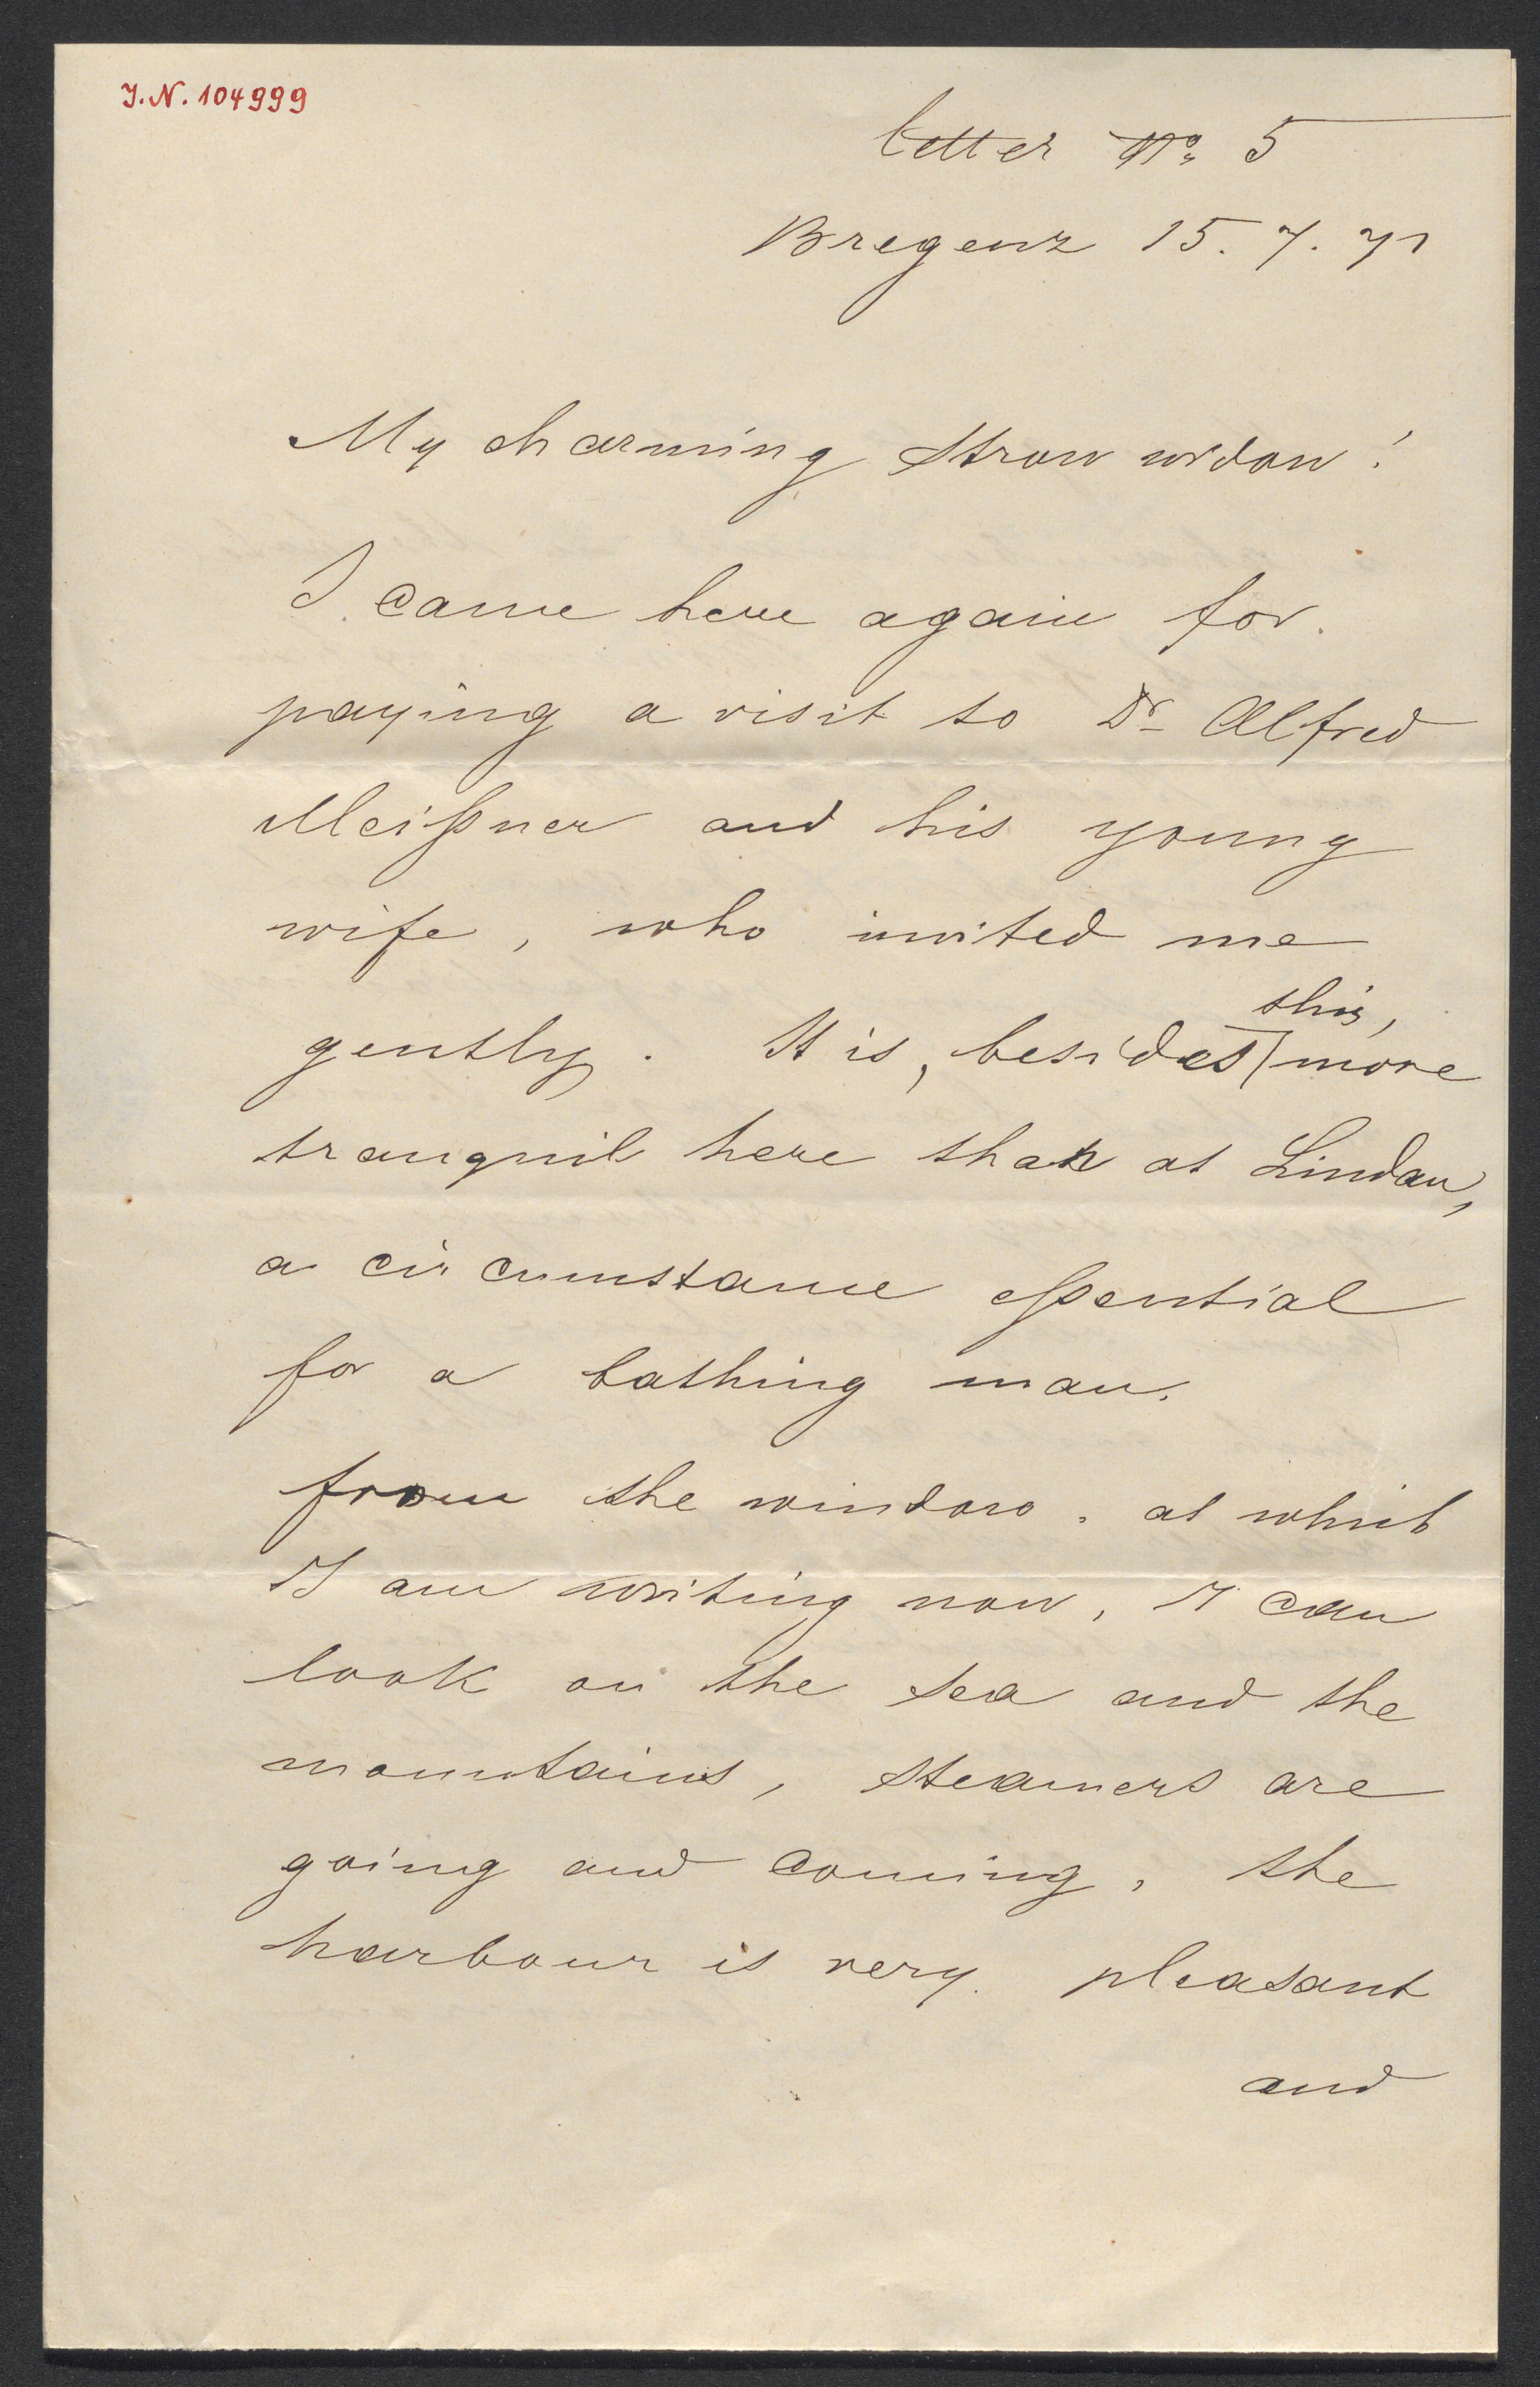 J.N. 104999
letter No. 5
Bregenz 15. 7. 71
My charming straw widow!
I came here again for
paying a visit to Dr Alfred
Meißner and his young
wife, who invited me
this,
gently. It is, besides more
tranquil here than at Lindau,
a circumstance eßential
for a bathing man.
from the window, at which
I am writing now, I can
look on the sea and the
mountains, steamers are
going and coming, the
harbour is very pleasant
and